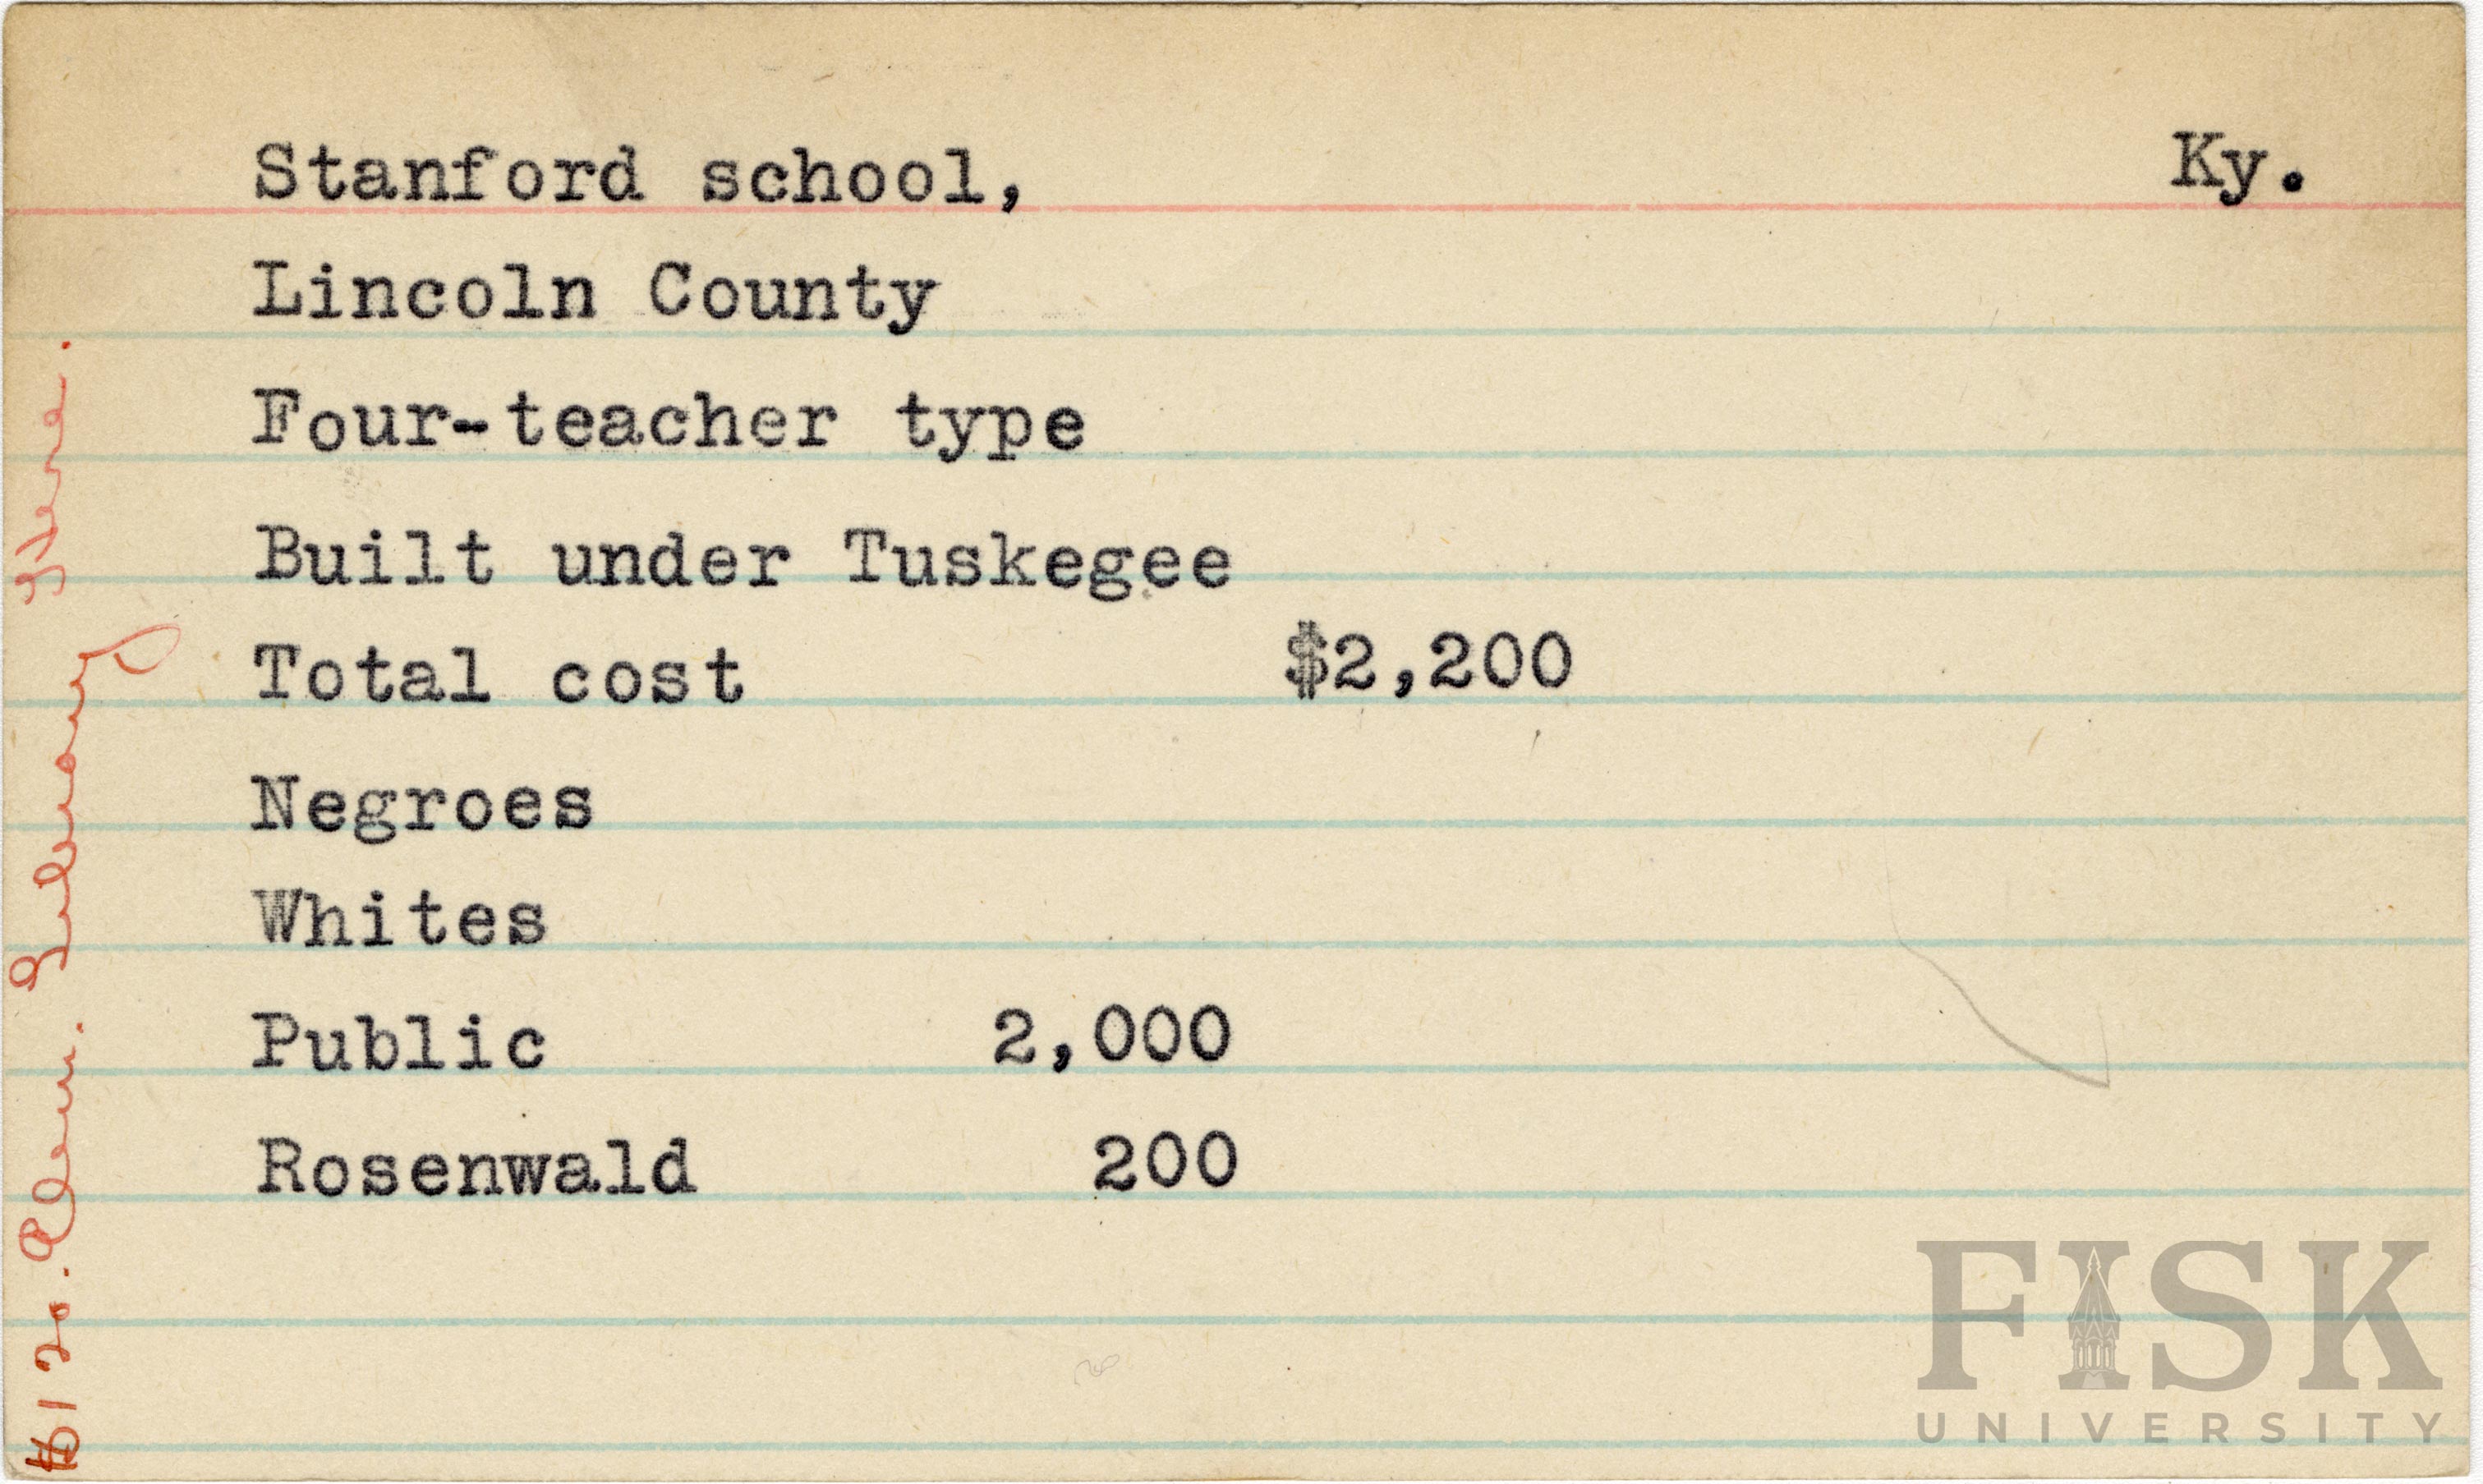 Stanford school, Ky.
Lincoln County
Four-teacher type
Built under Tuskegee
Total cost $2,200
Negroes
Whites
Public 2,000
Rosenwald 200
$120. Elem. Library Here.
FISK
UNIVERSITY